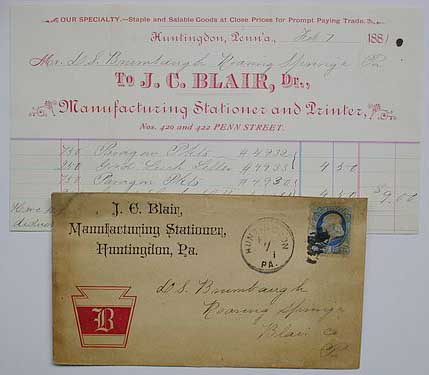 OUR SPECIALTY.—Staple and Salable Goods at Close Prices for Prompt Paying Trade.
Huntingdon, Penn'a., Feb 7 1881
Mr. D. S. Brumbaugh Roaring Springs Pa
To J. C. BLAIR, Dr.,
Manufacturing Stationer and Printer,
Nos. 420 and 422 PENN STREET.
750 Paragon Pkts #4932
250 Good 4 50
750 Paragon Pkts #4930
4 50 $9.00
J. C. Blair,
Manufacturing Stationer,
Huntingdon, Pa.
HUNTINGDON
PA.
B
D. S. Brumbaugh
Roaring Springs
Blair Co
Pa